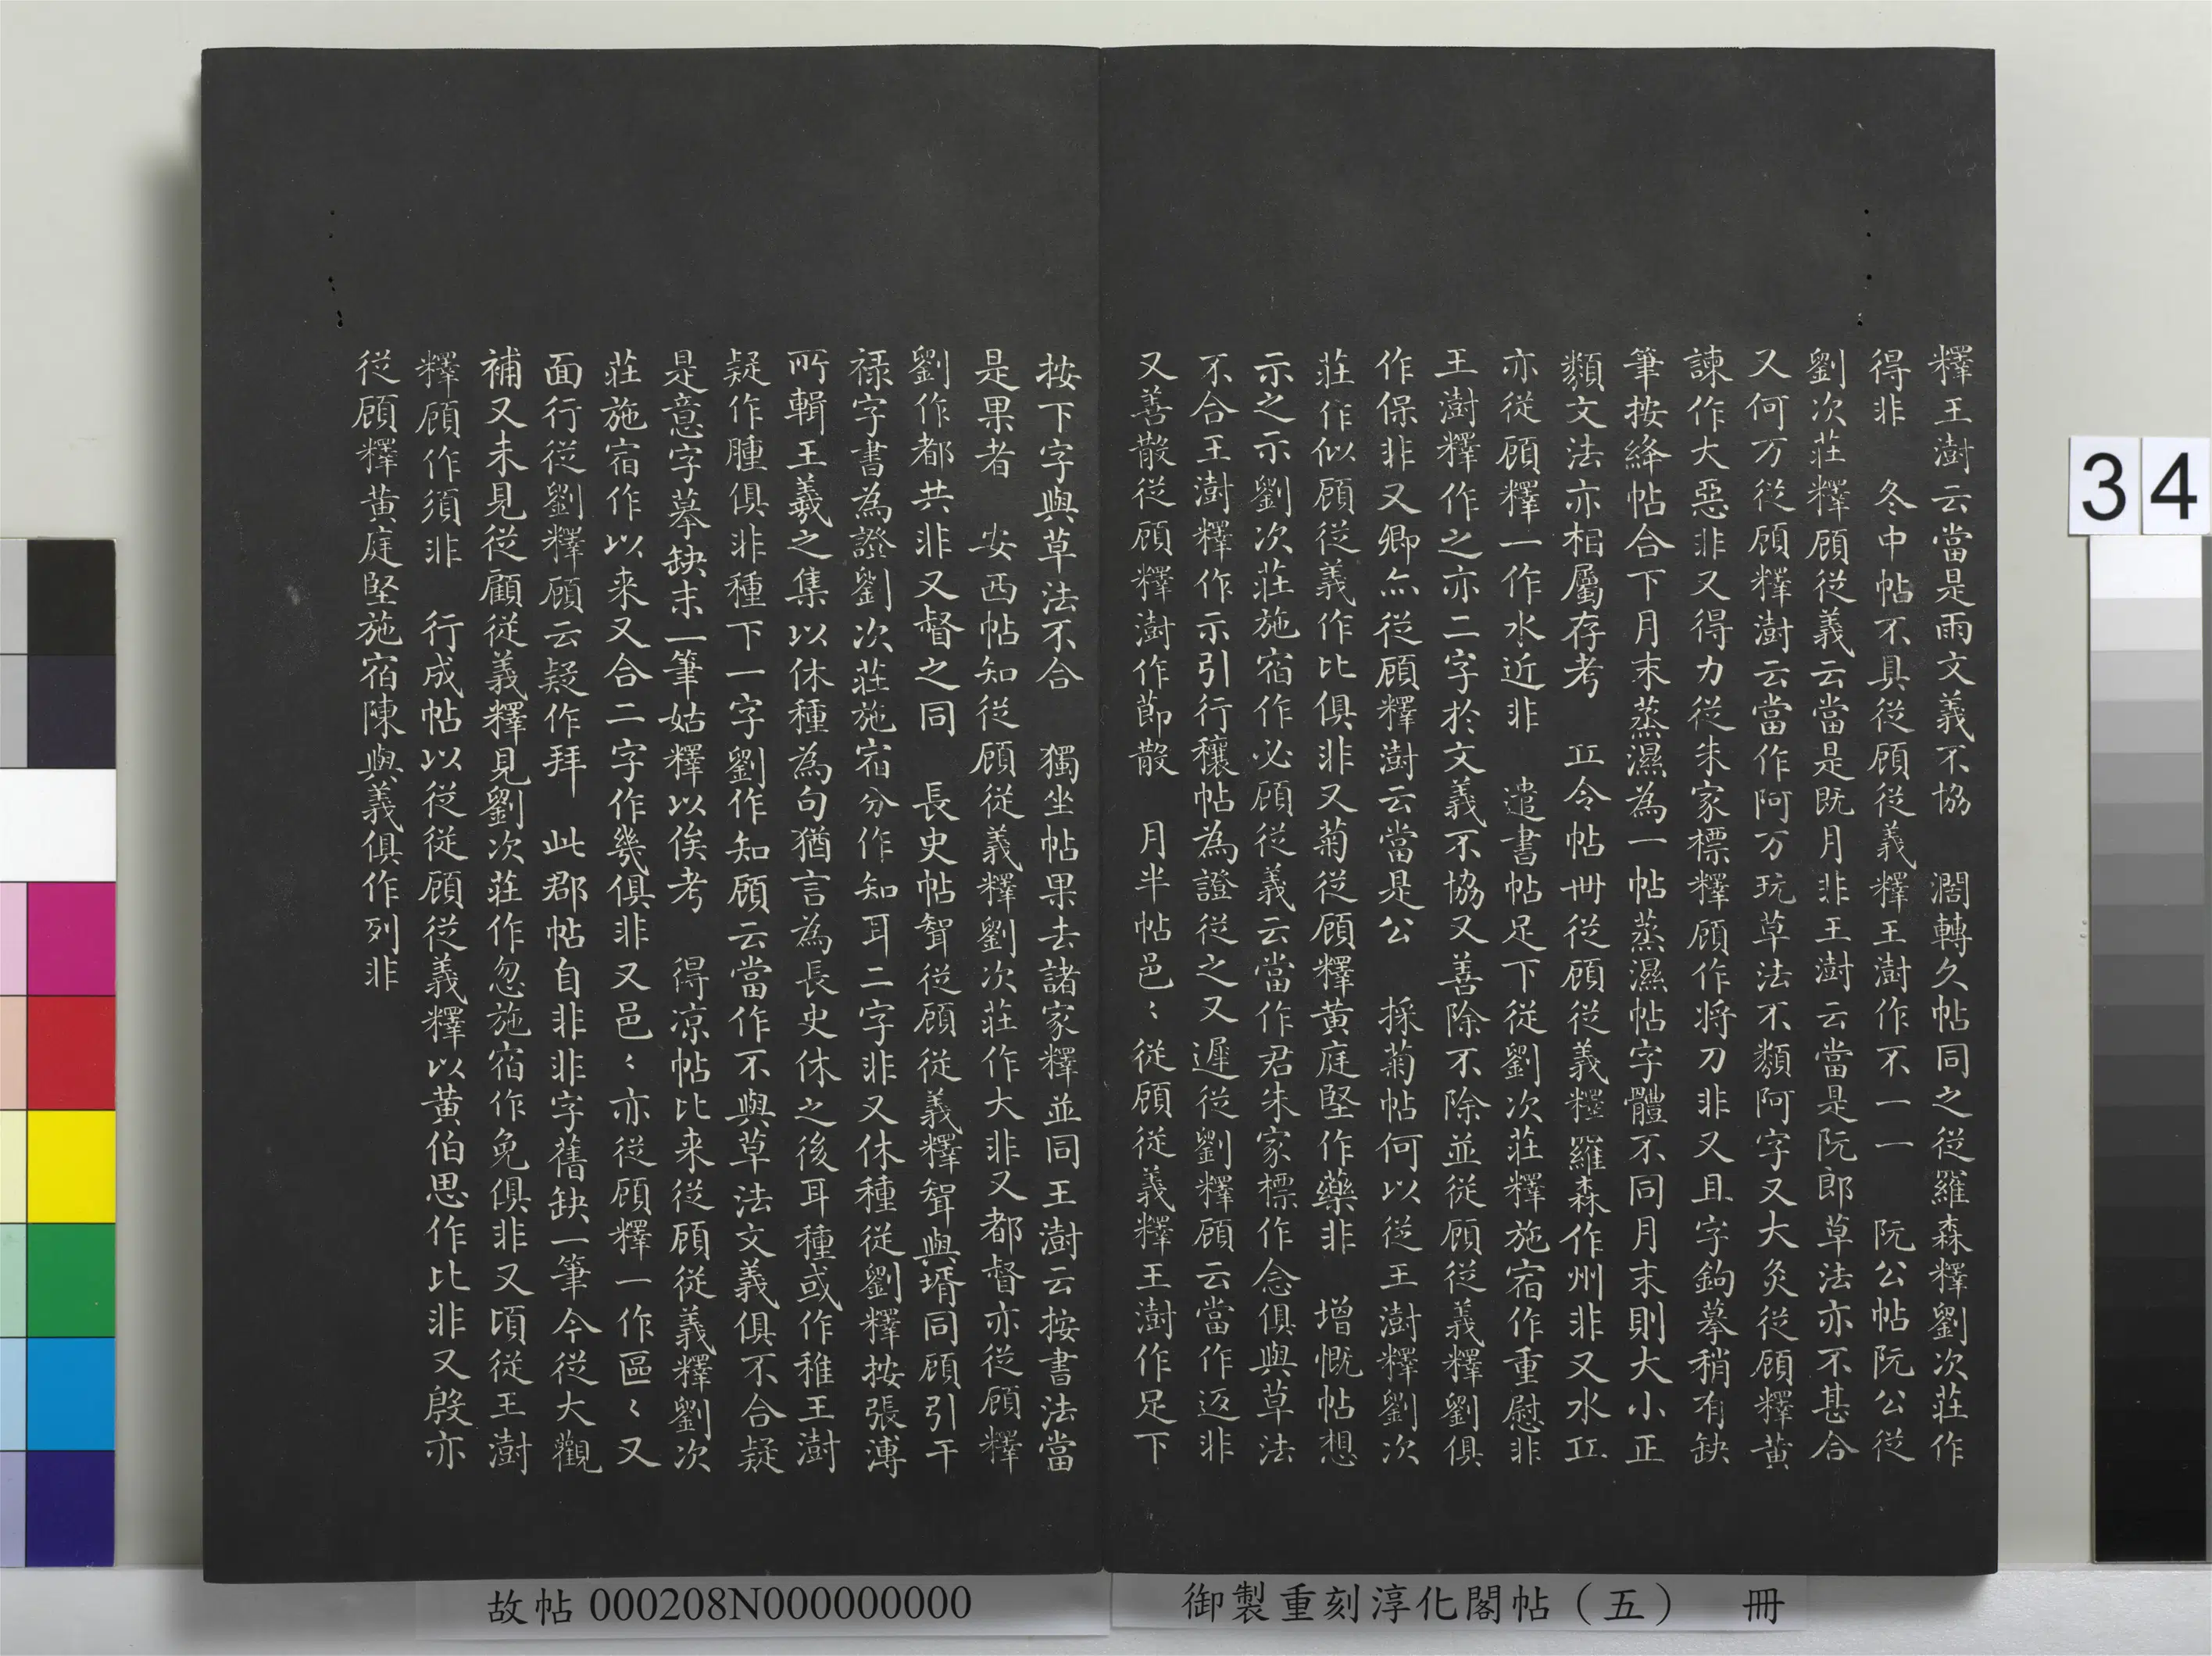 釋王澍云當是雨文義不協　濶轉久帖同之從羅森釋劉次莊作
得非　冬中帖不具從顧從義釋王澍作不一一　阮公帖阮公從
劉次莊釋顧從義云當是既月非王澍云當是阮郎草法亦不甚合
又何万從顧釋澍云當作阿万玩草法不類阿字又大灸從顧釋黃
諫作大惡非又得力從朱家標釋顧作将刀非又且字鉤摹稍有缺
筆按絳帖合下月末蒸濕為一帖蒸濕帖字體不同月末則大小正
類文法亦相屬存考　㠪令帖卌從顧從義釋羅森作州非又水㠪
亦從顧釋一作水近非　遣書帖足下從劉次莊釋施宿作重慰非
王澍釋作之亦二字於文義不協又善除不除並從顧從義釋劉俱
作保非又卿尒從顧釋澍云當是公　採菊帖何以從王澍釋劉次
莊作似顧從義作比俱非又菊從顧釋黃庭堅作藥非　增慨帖想
示之示劉次莊施宿作必顧從義云當作君朱家標作念俱與草法
不合王澍釋作示引行穰帖為證從之又遲從劉釋顧云當作返非
又善散從顧釋澍作節散　月半帖邑〻從顧從義釋王澍作足下
按下字與草法不合　獨坐帖果去諸家釋並同王澍云按書法當
是果者　安西帖知從顧從義釋劉次莊作大非又都督亦從顧釋
劉作都共非又督之同　長史帖聟從顧從義釋聟與壻同顧引干
祿字書為證劉次莊施宿分作知耳二字非又休種從劉釋按張溥
所輯王羲之集以休種為句猶言為長史休之後耳種或作稚王澍
疑作腫俱非種下一字劉作知顧云當作不與草法文義俱不合疑
是意字摹缺末一筆姑釋以俟考　得涼帖比来從顧從義釋劉次
莊施宿作以来又合二字作幾俱非又邑〻亦從顧釋一作區〻又
面行從劉釋顧云疑作拜　此郡帖自非非字舊缺一筆今從大觀
補又未見從顧從義釋見劉次莊作忽施宿作免俱非又頃從王澍
釋顧作須非　行成帖以從從顧從義釋以黃伯思作比非又殷亦
從顧釋黃庭堅施宿陳與義俱作列非
34
故帖 000208N000000000
御製重刻淳化閣帖（五）　冊